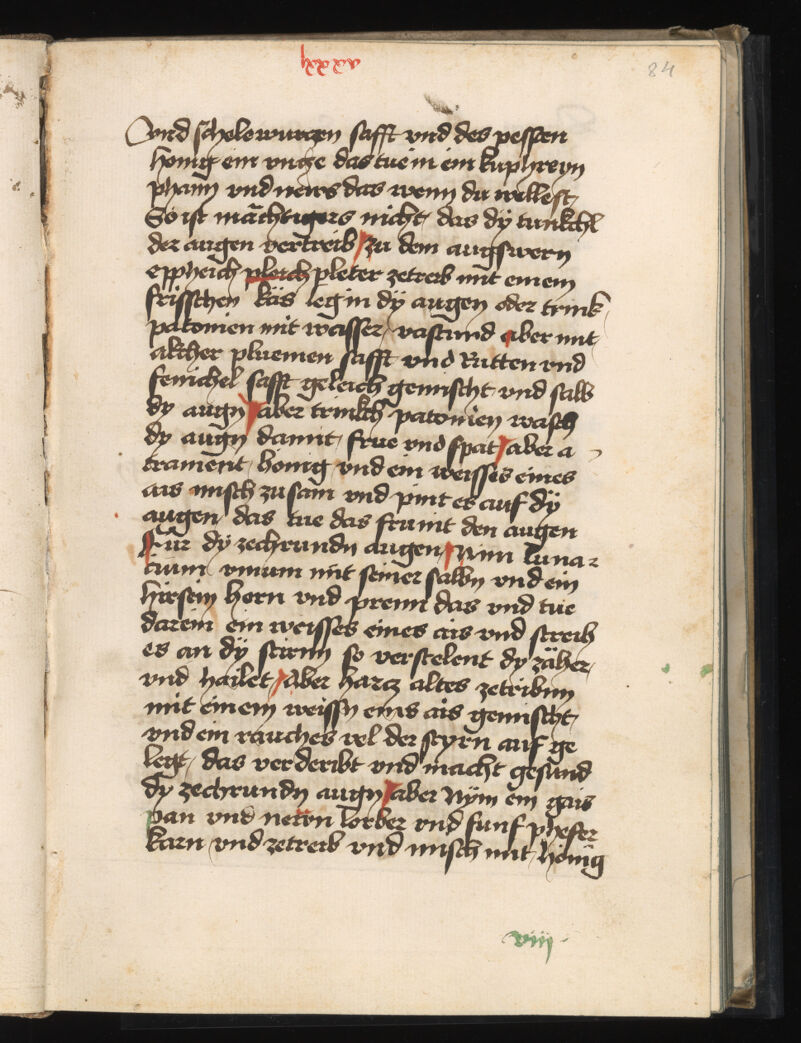 lxxxv
84
Vnd schelowurczen safft vnd des pessten
honig ein vncze das tue in ein kuphreyn
phann vnd news das wenn du wellest
So ist mächtigers nicht das dÿ tunkchl
der augen vertreib zu dem augswern
eppheich pleich pleter zetreib mit einem
frisschen käs leg in dÿ augen oder trink
patonien mit wasser vastund aber mit
akcher pluemen safft vnd Rutten vnd
fenichel safft geleich gemischt vnd salb
dy augn aber trinkch patonien wasch
dy augn damit frue vnd spat aber a
trament honig vnd ein weisses eines
ais misch zusam vnd pint es auf dÿ
augen das tue das frumt den augen
Fur dÿ zechrundn augen Nim luna
cium vinum mit seiner salbn vnd ein
hirsein horn vnd prenn das vnd tue
darein ein weisses eines ais vnd streich
es an dÿ stirnn so verstelent dy zäher
vnd hailet Aber harcz altes zetribnn
mit einem weissn eins ais gemischt
vnd ein rauches vel der styrn auf ge
legt das verderibt vnd macht gesund
dy zechrundn augn aber Nÿm ein gais
pan vnd newn lorber vnd funf phefer
karn vnd zetreib vnd misch mit honig
viij